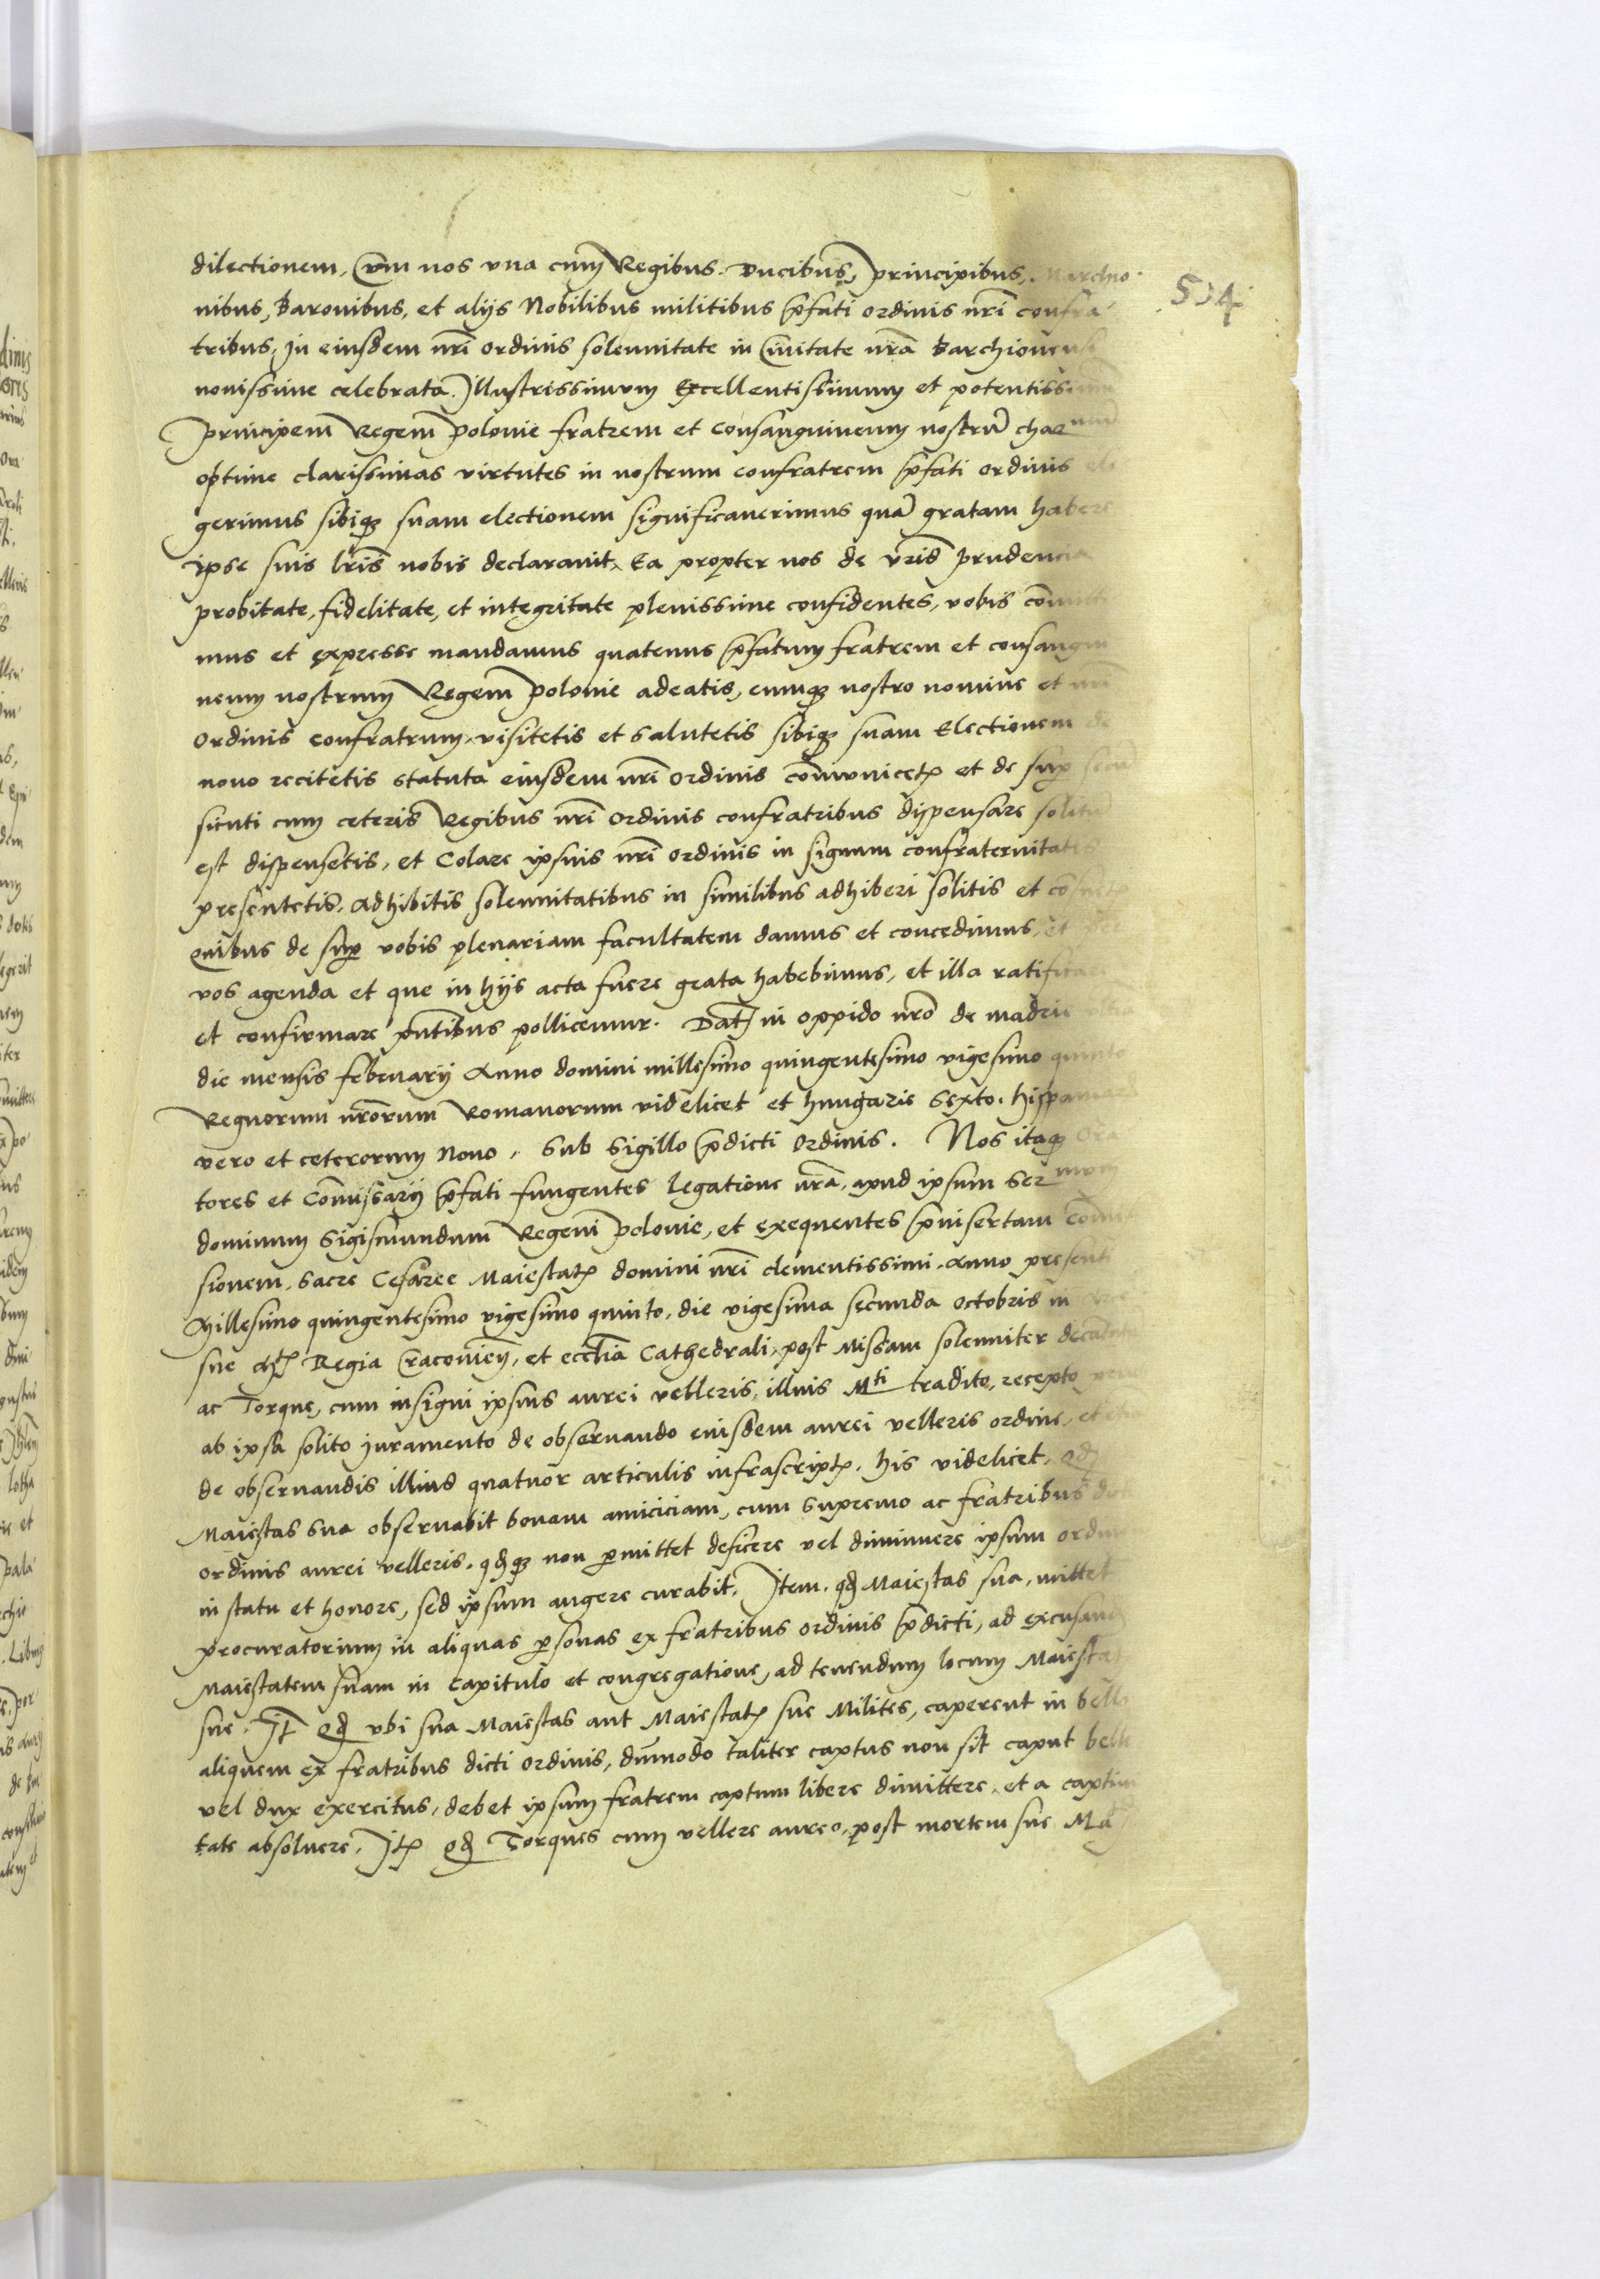 dilectionem, Cum nos vna cum Regibus. Ducibus, principibus, Marchio-
504
nibus, Baronibus, et alijs Nobilibus militibus p̄fati ordinis nr̄i confra-
tribus, in eiusdem nr̄i ordinis solennitate in Ciuitate nr̄a Barchionensi
nouissime celebrata. Illustrissimum Excellentissimum et potentissimū
principem Regem Polonie fratrem et consanguineum nostrū char
optime clarissimas virtutes in nostrum confratrem p̄fati ordinis ele
gerimus sibiqꝫ suam electionem significauerimus quā gratam habere
ipse suis lr̄is nobis declarauit. Ea propter nos de vr̄is prudencia
probitate, fidelitate, et integritate plenissime confidentes, vobis com̄itti
mus et expresse mandamus quatenus p̄fatum fratrem et consangui
neum nostrum Regem polonie adeatis, eumqꝫ nostro nomine et nr̄i
ordinis confratrum, visitetis et salutetis sibiqꝫ suam Electionem de
nouo recitetis statuta eiusdem nr̄i ordinis com̄unicetꝭ et de suꝑ secu
sicuti cum ceteris Regibus nr̄i ordinis confratribus dispensare solitū
est dispensetis, et Colare ipsius nr̄i ordinis in signum confraternitatis
presentetis, adhibitis solennitatibus in similibus adhiberi solitis et consuetꝭ
quibus de suꝑ vobis plenariam facultatem damus et concedimus, et
vos agenda et que in hijs acta fuere grata habebimus, et illa ratificare
et confirmare pn̄tibus pollicemur. Datꝭ in oppido nr̄o de madric
die mensis februarij Anno domini millesimo quingentesimo vigesimo quinto
Regnorum nr̄orum Romanorum videlicet et hungarie sexto. hispania
vero et ceterorum Nono, sub sigillo p̄dicti ordinis. Nos itaqꝫ Ora
tores et Com̄issarij p̄fati fungentes legatione nr̄a, apud ipsum Ser
dominum Sigismundum Regem polonie, et exequentes p̄insertam com̄is
sionem, sacre Cesaree Maiestatꝭ domini nr̄i clementissimi. Anno presenti
Millesimo quingentesimo vigesimo quinto, die vigesima secunda octobris in Arce
sue Mtꝭ Regia Cracouien̄, et eccl̄ia Cathedrali, post Missam solenniter decantatā
ac Torque, cum insigni ipsius aurei velleris, illius Mti tradito, recepto
ab ipsa solito iuramento de obseruando eiusdem aurei velleris ordine, et
de obseruandis illius quatuor articulis infrascriptꝭ. his videlicet. qd
Maiestas sua obseruabit bonam amiciciam, cum supremo ac fratribus dicti
ordinis aurei velleris. qdqꝫ non ꝑmittet deficere vel diminuere ipsum ordinē
in statu et honore, sed ipsum augere curabit. Item. qd Maiestas sua, mittet
procuratorium in aliquas ꝑsonas ex fratribus ordinis p̄dicti, ad excusand
Maiestatem suam in capitulo et congregatione, ad tenendum locum Maiestat
sue. Itꝭ qd vbi sua Maiestas aut Maiestatꝭ sue Milites, caperent in bello
aliquem ex fratribus dicti ordinis, dum̄odo taliter captus non sit caput belli
vel dux exercitus, debet ipsum fratrem captum libere dimittere, et a captiui
tate absoluere. Itꝭ qd Torques cum vellere aureo, post mortem sue Ma